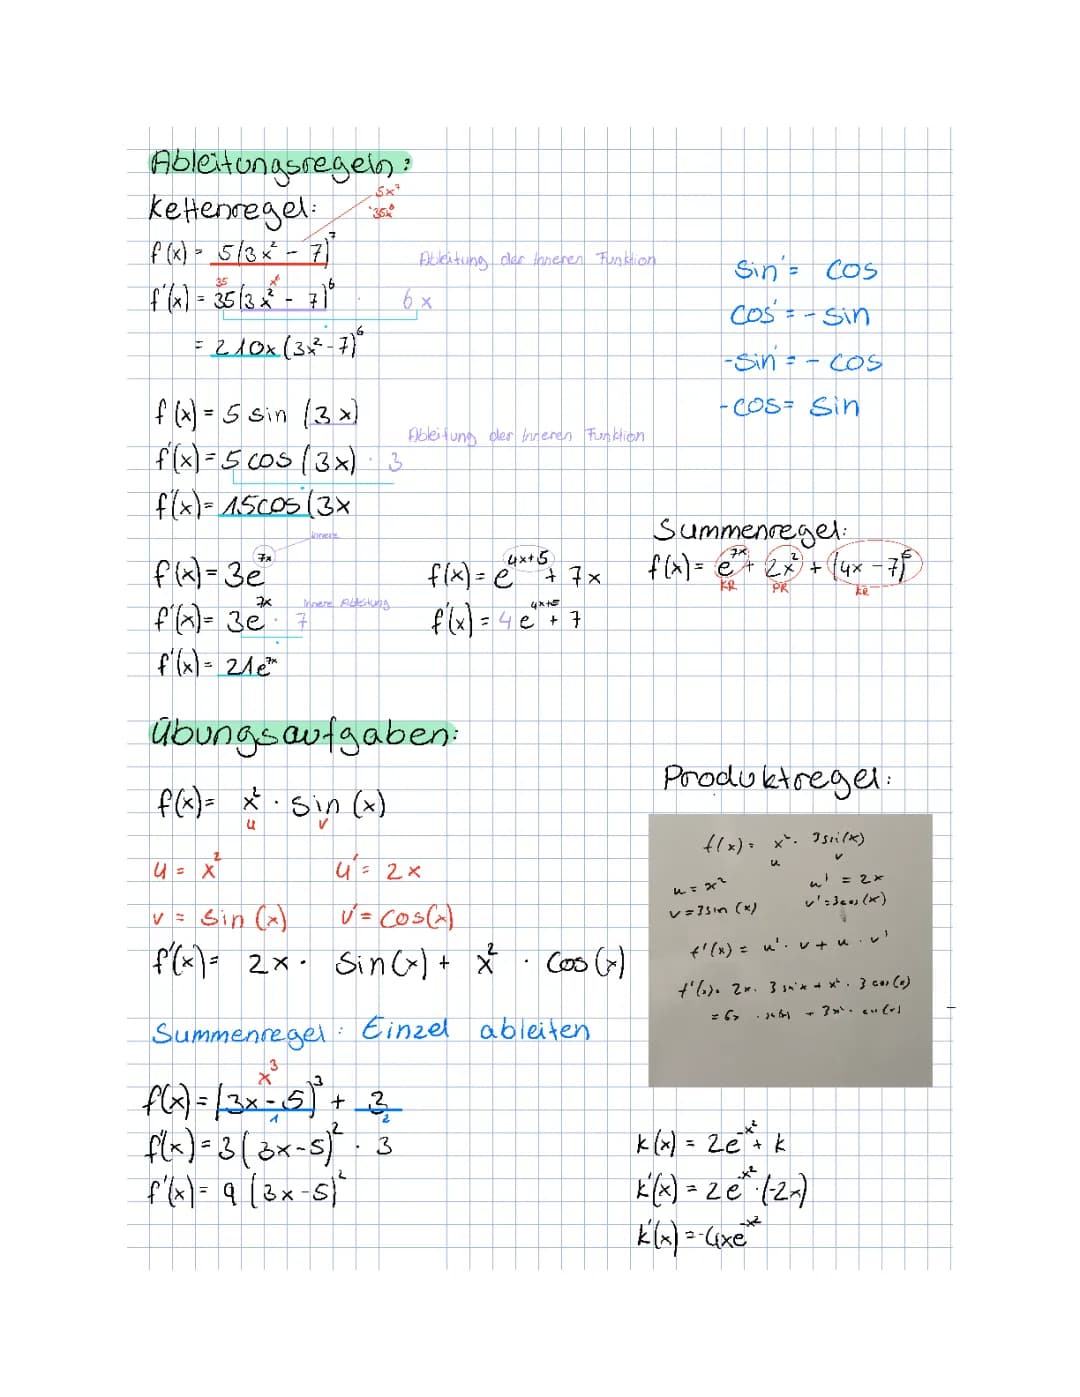 Ableitungsregeln:
Kettenregel:
5x⁷
35x⁶
f(x) = 5(3x² - 7)⁷
Ableitung der Inneren Funktion
35 x⁶
f'(x) = 35(3x² - 7)⁶ · 6x
= 210x(3x²-7)⁶
sin' = cos
cos' = - sin
-sin' = - cos
-cos = sin
f(x) = 5 sin (3x)
Ableitung der Inneren Funktion
f'(x) = 5 cos (3x) · 3
f'(x) = 15cos(3x
Innere
f(x) = 3e⁷ˣ
Innere Ableitung
f'(x) = 3e⁷ˣ · 7
f'(x) = 21e⁷ˣ
f(x) = e⁴ˣ⁺⁵ + 7x
f'(x) = 4e⁴ˣ⁺⁵ + 7
Summenregel:
f(x) = e⁷ˣ + 2x² + (4x - 7)⁶
KR PR KR
Übungsaufgaben:
f(x) = x² · sin (x)
u v
u = x² u' = 2x
v = sin (x) v' = cos(x)
f'(x) = 2x · sin(x) + x² · cos(x)
Produktregel:
f(x) = x² · 3sin(x)
u v
u = x² u' = 2x
v = 3sin(x) v' = 3cos(x)
f'(x) = u' · v + u · v'
f'(x) = 2x · 3 sin x + x² · 3 cos(x)
= 6x · sin(x) + 3x² · cos(x)
Summenregel: Einzel ableiten
x³
f(x) = (3x-5)³ + 2
1 2
f'(x) = 3(3x-5)² · 3
f'(x) = 9(3x-5)²
k(x) = 2e^-x² + k
k'(x) = 2e^-x² · (-2x)
k'(x) = -4xe^-x²